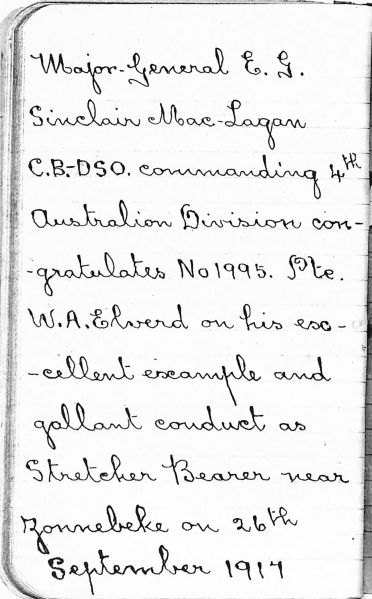 Major-General E. G.
Sinclair Mac-Lagan
C.B.-DSO. commanding 4th
Australian Division con-
-gratulates No 1995. Pte.
W.A. Elverd on his exc-
-cellent example and
gallant conduct as
Stretcher Bearer near
Zonnebeke on 26th
September 1917